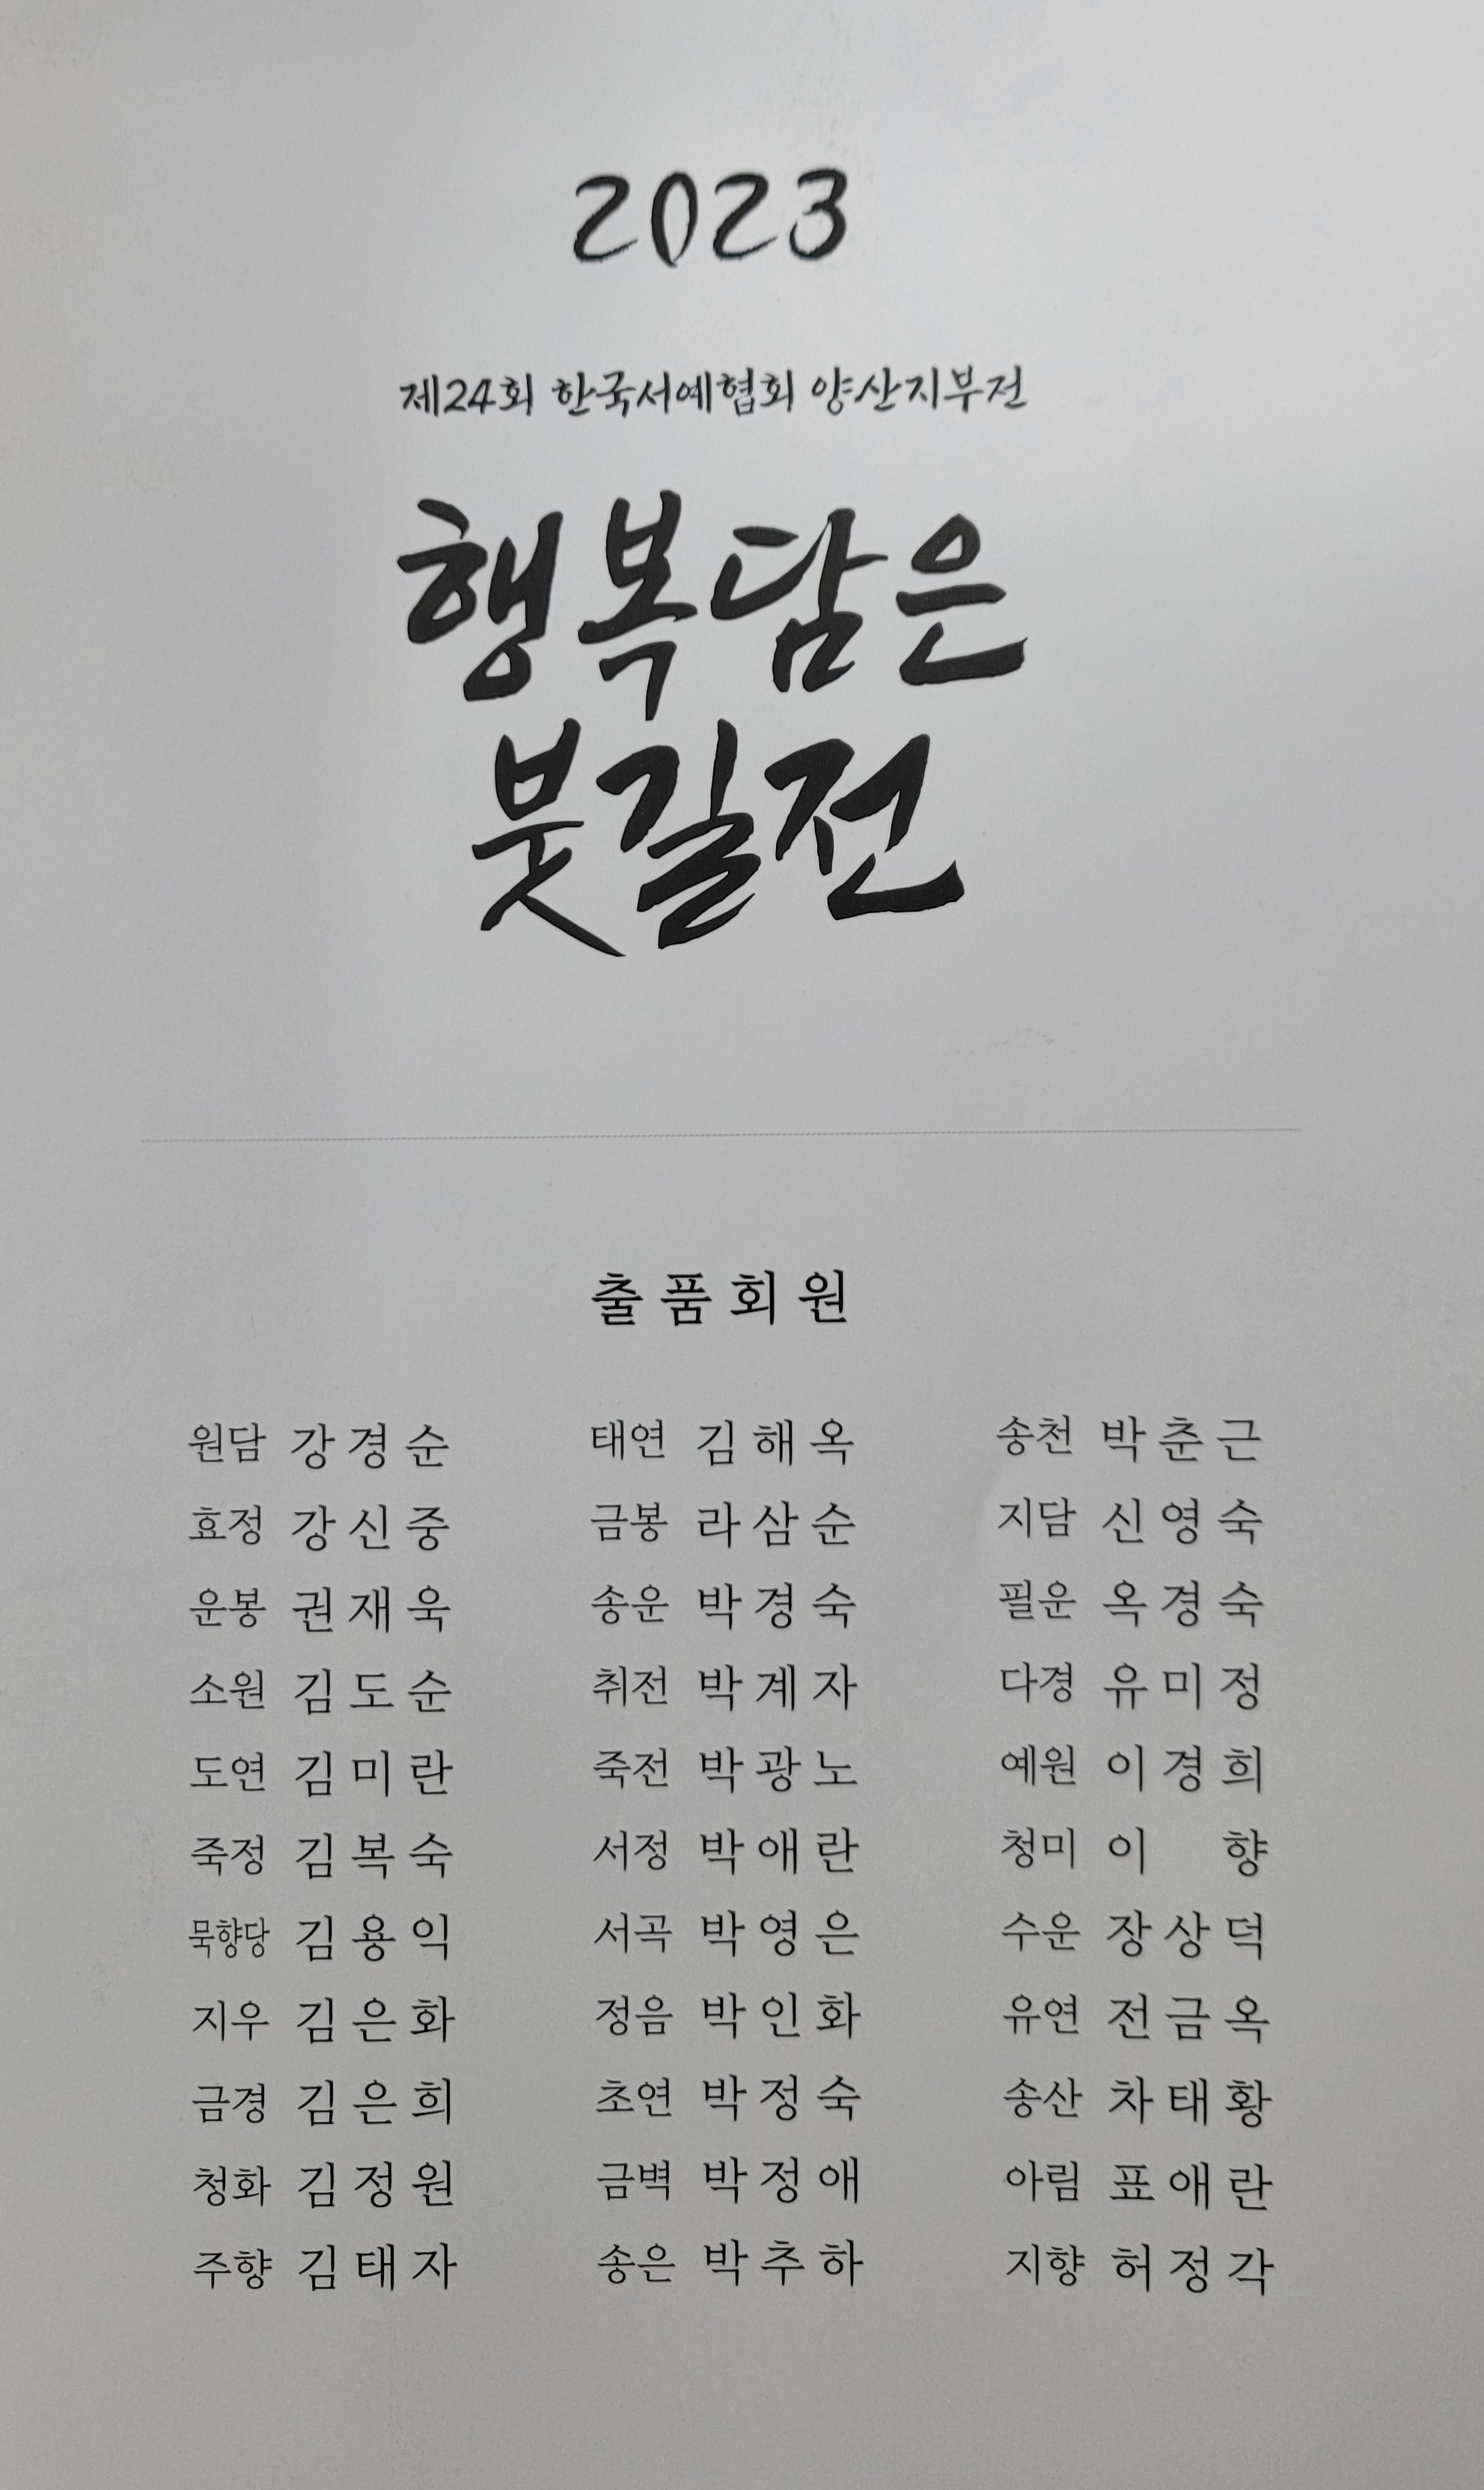 2023
제24회 한국서예협회 양산지부전
행복담은
붓길전
출품회원
원담 강경순
효정 강신중
운봉 권재욱
소원 김도순
도연 김미란
죽정 김복숙
묵향당 김용익
지우 김은화
금경 김은희
청화 김정원
주향 김태자
태연 김해옥
금봉 라삼순
송운 박경숙
취전 박계자
죽전 박광노
서정 박애란
서곡 박영은
정음 박인화
초연 박정숙
금벽 박정애
송은 박추하
송천 박춘근
지담 신영숙
필운 옥경숙
다경 유미정
예원 이경희
청미 이 향
수운 장상덕
유연 전금옥
송산 차태황
아림 표애란
지향 허정각